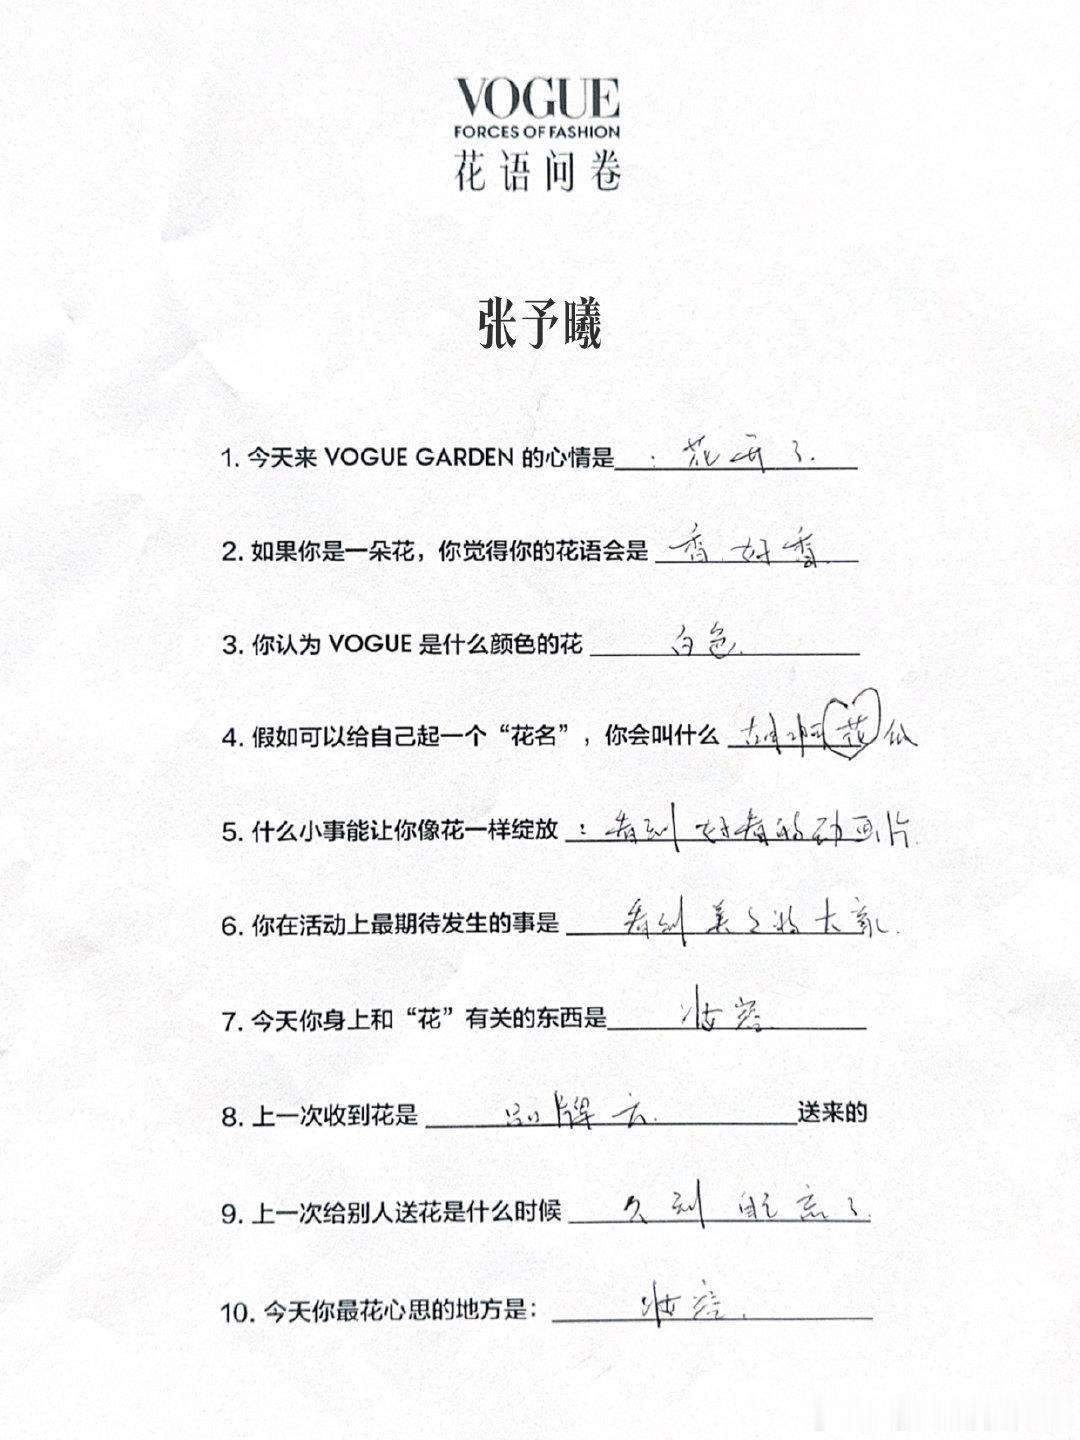 VOGUE
FORCES OF FASHION
花语问卷
张予曦
1. 今天来 VOGUE GARDEN 的心情是：花开了.
2. 如果你是一朵花，你觉得你的花语会是 香.好香.
3. 你认为 VOGUE 是什么颜色的花 白色.
4. 假如可以给自己起一个“花名”，你会叫什么 胡啊花瓜
5. 什么小事能让你像花一样绽放：看到好看的动画片.
6. 你在活动上最期待发生的事是 看到美美的大家.
7. 今天你身上和“花”有关的东西是 妆容
8. 上一次收到花是 品牌方. 送来的
9. 上一次给别人送花是什么时候 久到 忘了.
10. 今天你最花心思的地方是： 妆容.